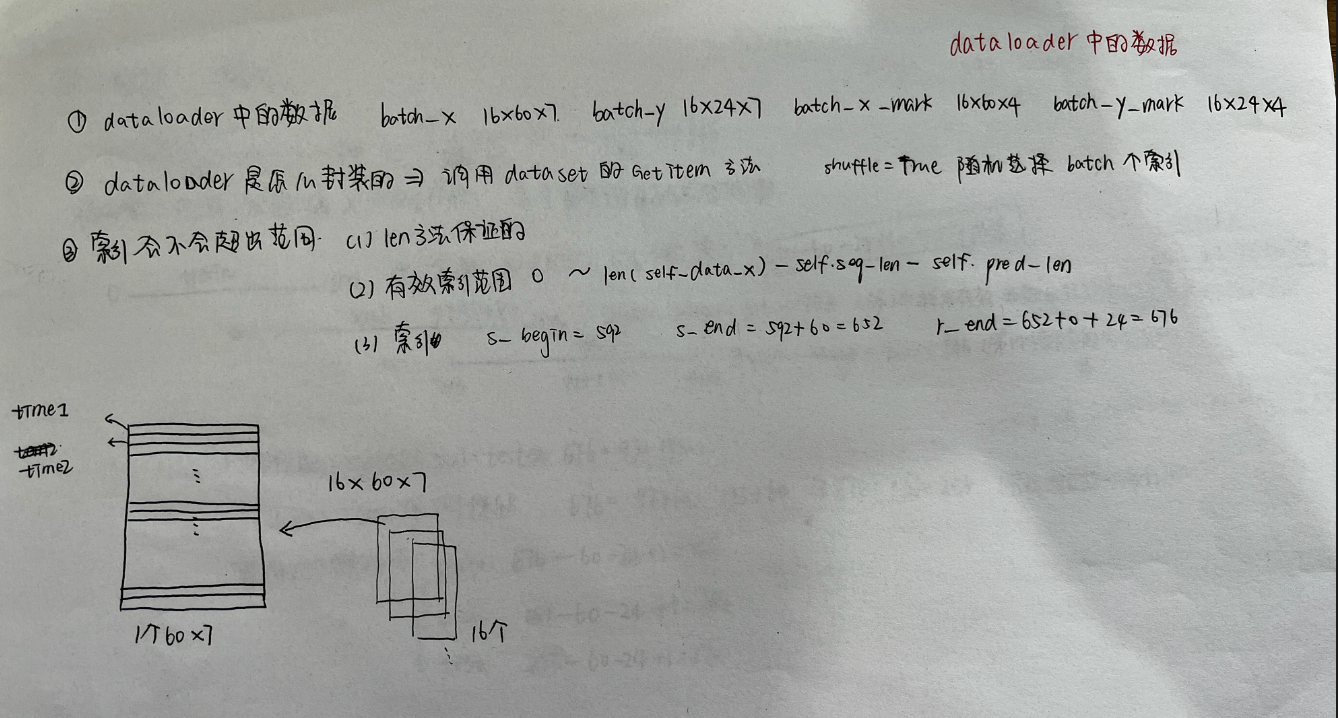 dataloader 中的数据
① dataloader 中的数据 batch_x 16×60×7 batch-y 16×24×7 batch-x-mark 16×60×4 batch-y-mark 16×24×4
② dataloader 是 封装的 ⇒ 调用 dataset 的 Getitem 方法 shuffle=True 随机选择 batch 个索引
③ 索引会不会超出范围. (1) len方法保证的
(2) 有效索引范围 0 ~ len(self-data-x) - self.seq-len - self.pred-len
(3) 索引 s_begin=592 s_end=592+60=652 r_end=652+0+24=676
time1
time2
16×60×7
1个60×7
16个